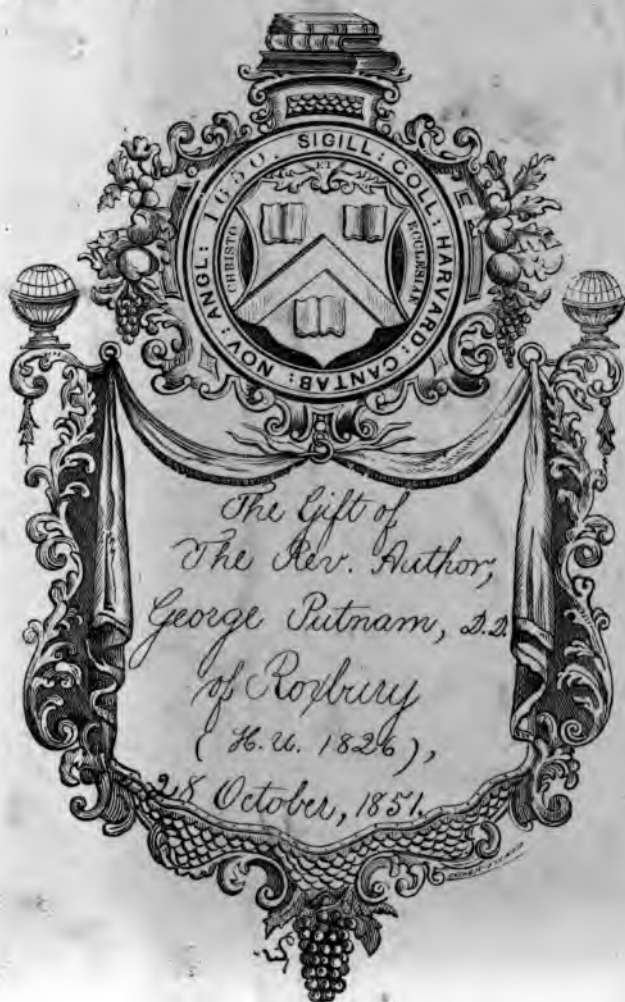 SIGILL: COLL: HARVARD: CANTAB: NOV: ANGL: 1650.
ET
CHRISTO
ECCLESIAE
The Gift of
The Rev. Author,
George Putnam, D.D.
of Roxbury
(H.U. 1826),
28 October, 1851.